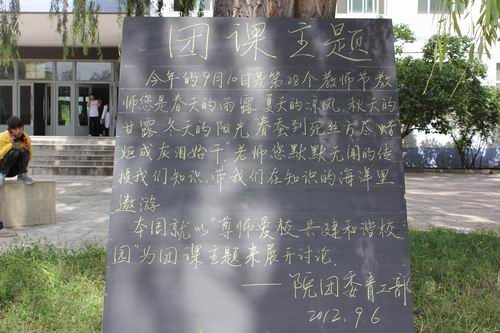 团课主题
今年的9月10日是第28个教师节,教
师您是春天的雨露、夏天的凉风、秋天的
甘露、冬天的阳光,春蚕到死丝方尽,蜡
炬成灰泪始干”老师您默默无闻的传
授我们知识,带我们在知识的海洋里
遨游
本周就以“尊师爱校,共建和谐校
园”为团课主题来展开讨论。
——院团委青工部
2012.9.6